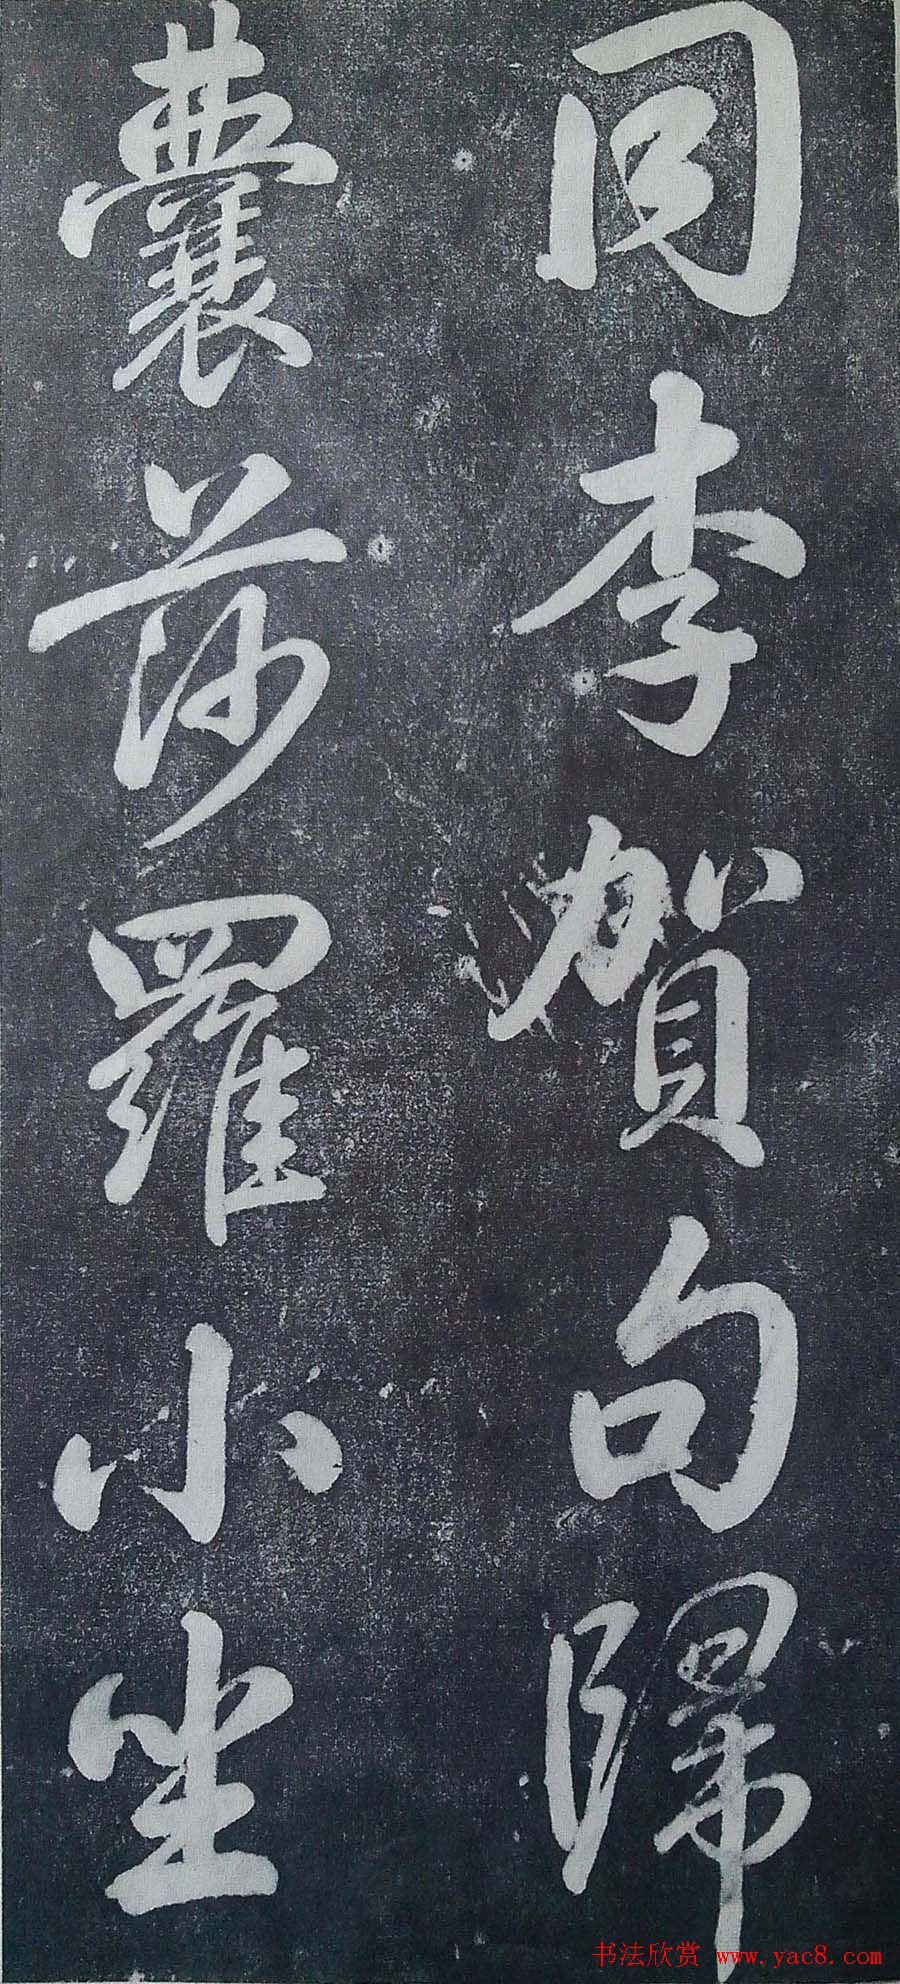 同李賀句歸
囊莎羅小坐
书法欣赏 www.yac8.com